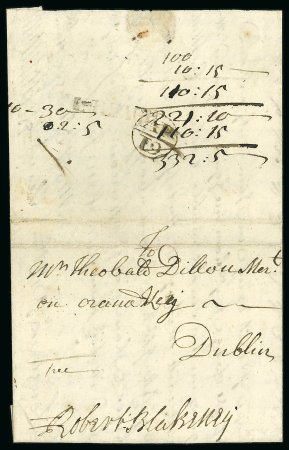 100
10:15
110:15
221:10
110:15
332:5
10-30
2:5
To
Mr Theobald Dillon Mert
on orand Key
Dublin
Free
Robert Blakeney